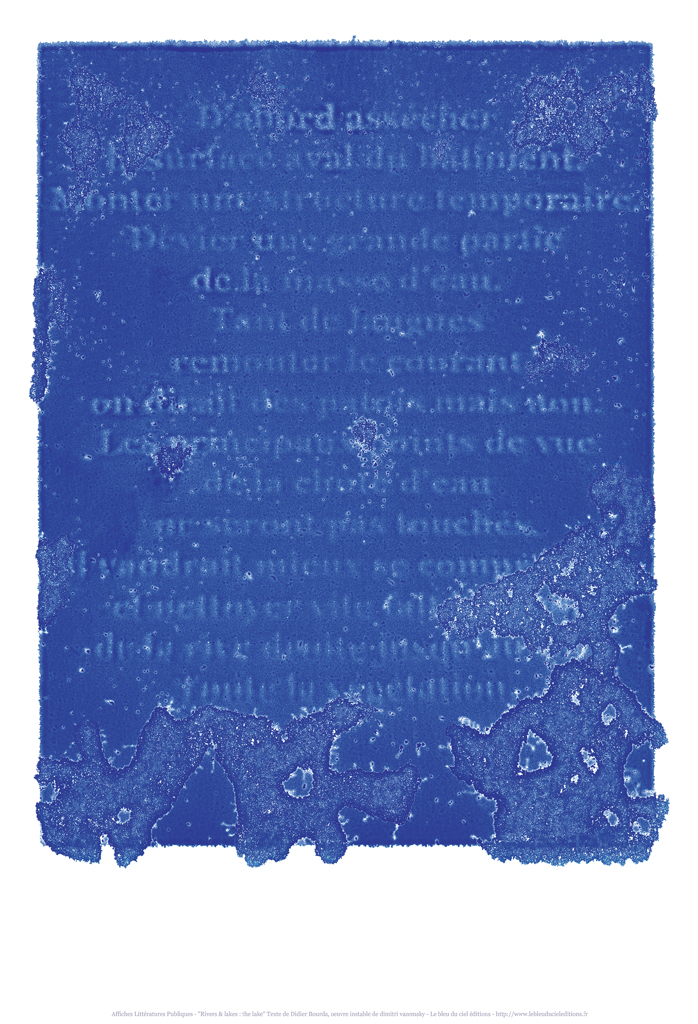 D'abord assécher
la surface aval du bâtiment.
Monter une structure temporaire.
Dévier une grande partie
de la masse d'eau.
Tant de langues
remonter le courant
on dirait des patois mais non.
Les principaux points de vue
de la chute d'eau
ne seront pas touchés.
Il vaudrait mieux se
et nettoyer vite
de la rive droite jusqu'au
Toute la végétation
Affiches Littératures Publiques - "Rivers & lakes : the lake" Texte de Didier Bourda, oeuvre instable de dimitri vazemsky - Le bleu du ciel éditions - http://www.lebleuducieleditions.fr